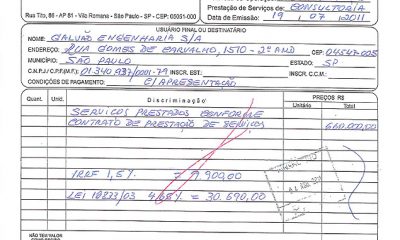 Rua Tito, 86 - AP 81 - Vila Romana - São Paulo - SP - CEP: 05051-000
Prestação de Serviços de: CONSULTORIA
Data de Emissão: 19 / 07 / 2011
USUÁRIO FINAL OU DESTINATÁRIO
NOME: GALVÃO ENGENHARIA S/A
ENDEREÇO: RUA GOMES DE CARVALHO, 1510 - 2º AND CEP: 04547-005
MUNICÍPIO: SÃO PAULO ESTADO: SP
C.N.P.J./C.P.F.(M.F.): 01.340.937/0001-79 INSCR. EST. INSCR. C.C.M.:
CONDIÇÕES DE PAGAMENTO: C/ APRESENTAÇÃO
Quant. Unid. Discriminação PREÇOS R$
Unitário Total
SERVIÇOS PRESTADOS CONFORME
CONTRATO DE PRESTAÇÃO DE SERVIÇOS 660.000,00
IRRF 1,5% = 9.900,00
LEI 10833/03 4,65% = 30.690,00
NÃO TEM VALOR